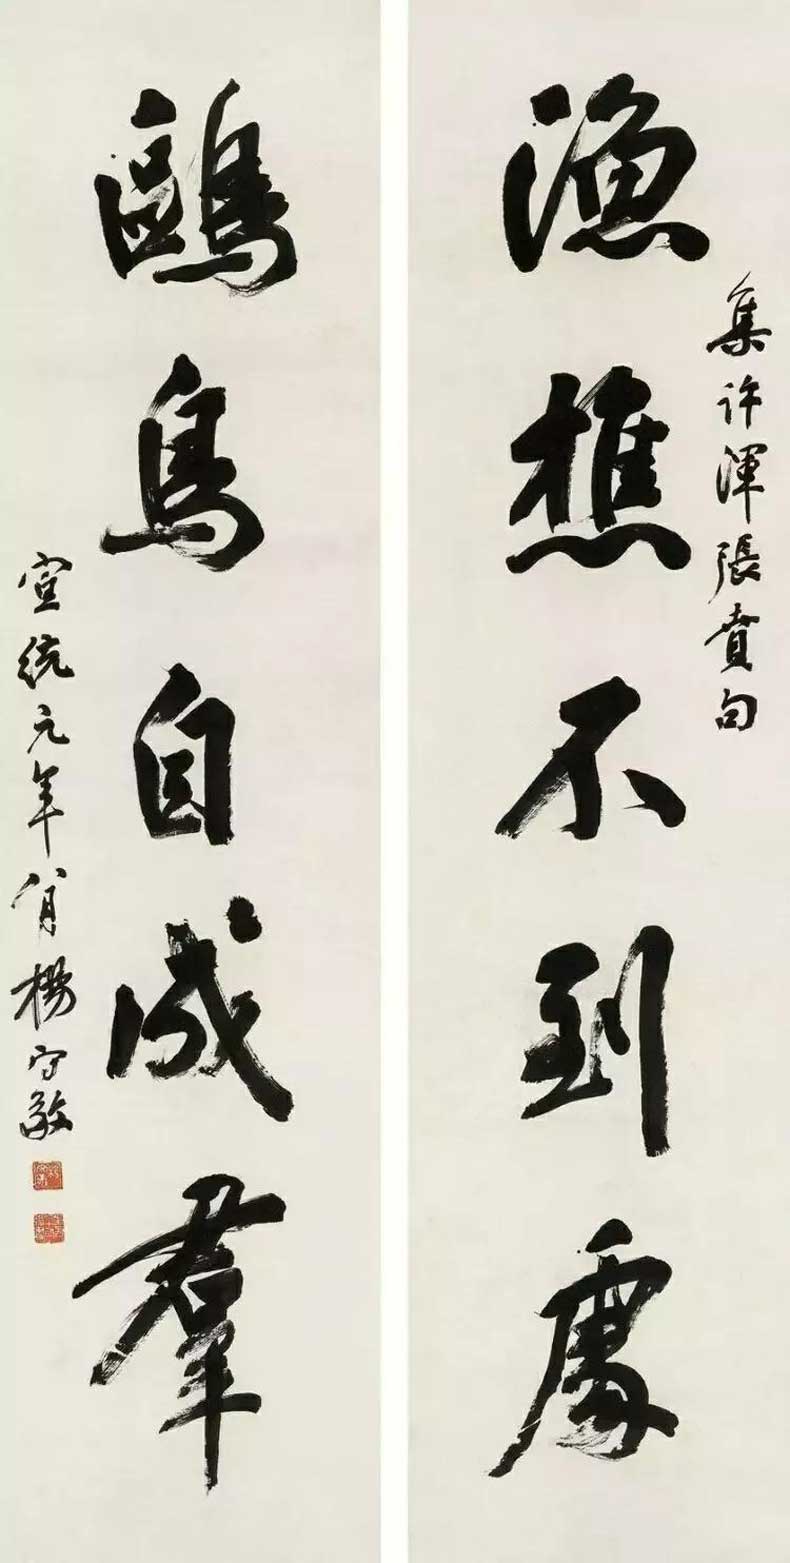 漁樵不到處
集許渾張賁句
鷗鳥自成羣
宣統元年八月楊守敬